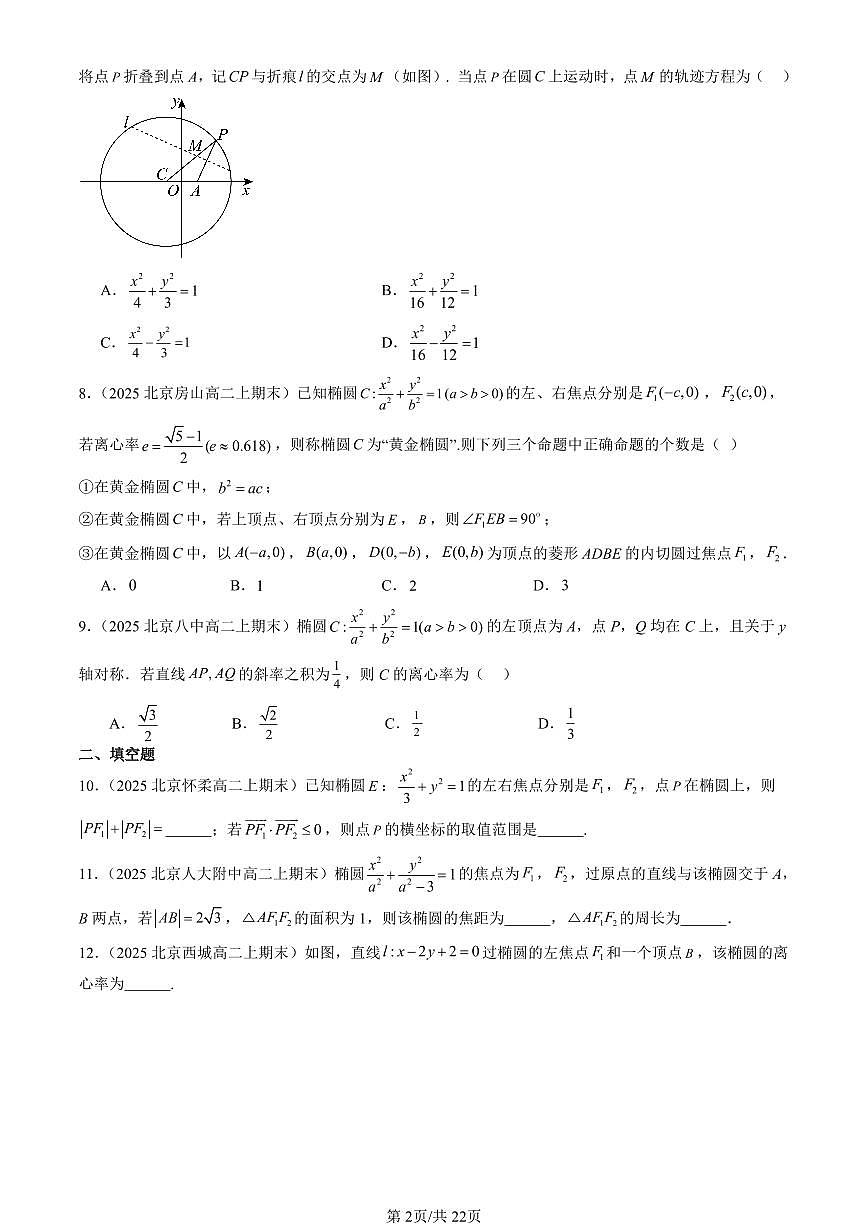 将点 P 折叠到点 A，记 CP 与折痕 l 的交点为 M （如图）. 当点 P 在圆 C 上运动时，点 M 的轨迹方程为（ ）
y
l
P
M
C
O A x
A． x²/4 + y²/3 = 1 B． x²/16 + y²/12 = 1
C． x²/4 − y²/3 = 1 D． x²/16 − y²/12 = 1
8.（2025 北京房山高二上期末）已知椭圆 C : x²/a² + y²/b² = 1 (a > b > 0) 的左、右焦点分别是 F₁(−c,0) ， F₂(c,0) ，
若离心率 e = (√5−1)/2 (e ≈ 0.618) ，则称椭圆 C 为“黄金椭圆”.则下列三个命题中正确命题的个数是（ ）
①在黄金椭圆 C 中， b² = ac ；
②在黄金椭圆 C 中，若上顶点、右顶点分别为 E ， B ，则 ∠F₁EB = 90° ；
③在黄金椭圆 C 中，以 A(−a,0) ， B(a,0) ， D(0,−b) ， E(0,b) 为顶点的菱形 ADBE 的内切圆过焦点 F₁ ， F₂ .
A．0 B．1 C．2 D．3
9.（2025 北京八中高二上期末）椭圆 C : x²/a² + y²/b² = 1(a > b > 0) 的左顶点为 A，点 P，Q 均在 C 上，且关于 y
轴对称．若直线 AP, AQ 的斜率之积为 1/4 ，则 C 的离心率为（ ）
A． √3/2 B． √2/2 C． 1/2 D． 1/3
二、填空题
10.（2025 北京怀柔高二上期末）已知椭圆 E ： x²/3 + y² = 1 的左右焦点分别是 F₁ ， F₂ ，点 P 在椭圆上，则
|PF₁| + |PF₂| = ______；若 PF₁ · PF₂ ≤ 0 ，则点 P 的横坐标的取值范围是______.
11.（2025 北京人大附中高二上期末）椭圆 x²/a² + y²/(a²−3) = 1 的焦点为 F₁ ， F₂ ，过原点的直线与该椭圆交于 A，
B 两点，若 |AB| = 2√3 ， △AF₁F₂ 的面积为 1，则该椭圆的焦距为______， △AF₁F₂ 的周长为______．
12.（2025 北京西城高二上期末）如图，直线 l : x − 2y + 2 = 0 过椭圆的左焦点 F₁ 和一个顶点 B ，该椭圆的离
心率为______.
第 2页/共 22页